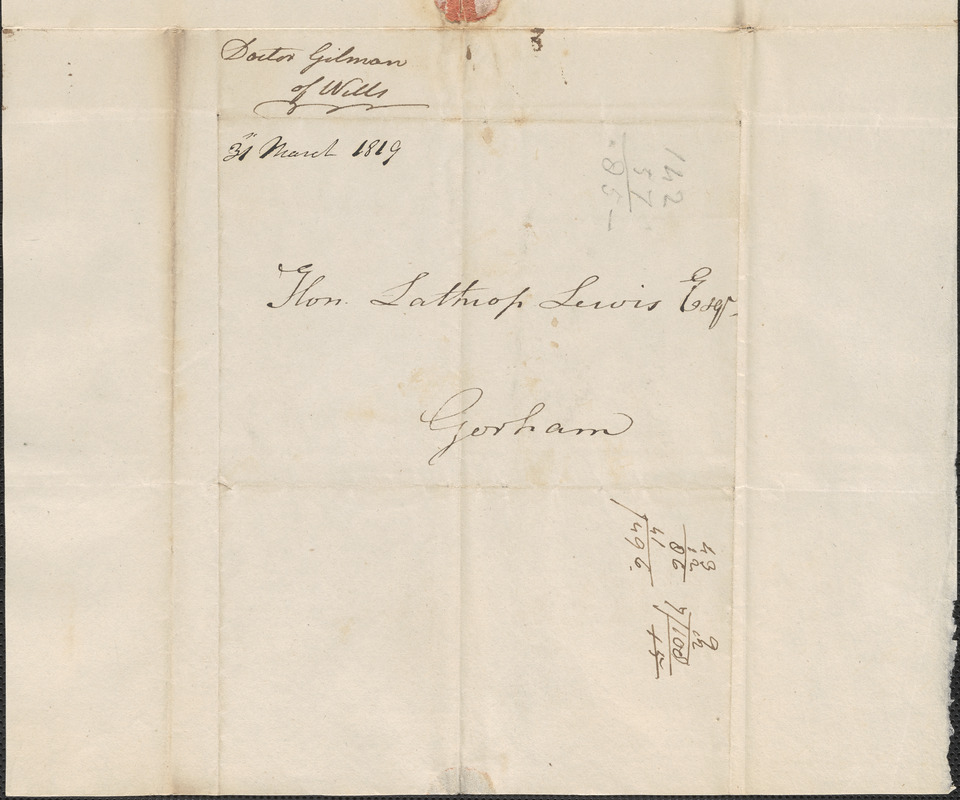 Doctor Gilman
of Wells
31 March 1819
142
57
85
Hon. Lathrop Lewis Esqr
Gorham
43
12
86
41
496
9
12
108